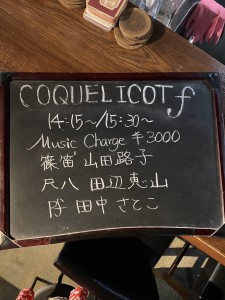 COQUELICOT f
14:15～15:30～
Music Charge ¥3000
篠笛 山田路子
尺八 田辺恵山
Pf 田中さとこ